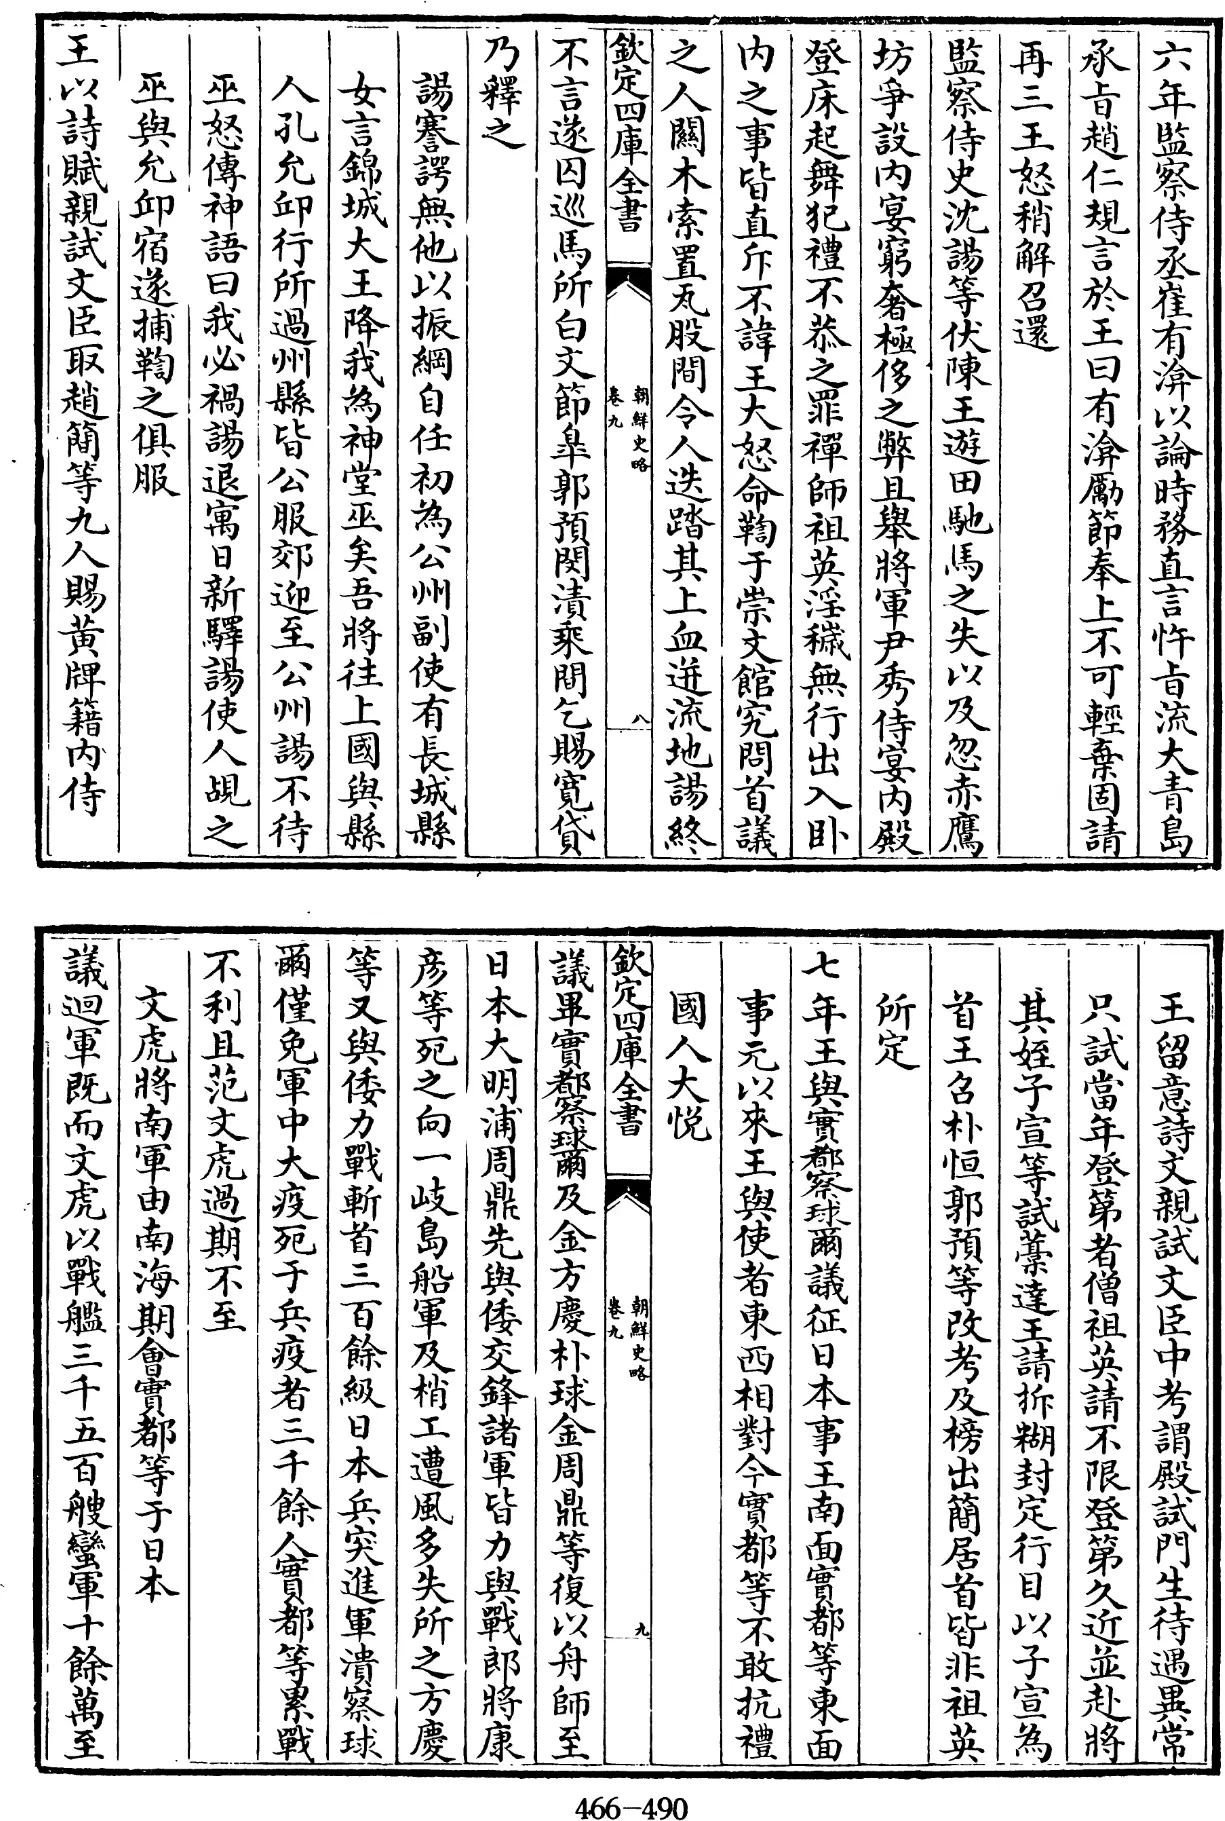 六年監察侍丞崔有渰以論時務直言忤㫖流大青島
承㫖趙仁規言於王曰有渰勵節奉上不可輕棄固請
再三王怒稍解召還
監察侍史沈諹等伏陳王遊田馳馬之失以及忽赤鷹
坊爭設内宴窮奢極侈之弊且舉將軍尹秀侍宴内殿
登床起舞犯禮不恭之罪禪師祖英淫穢無行出入卧
内之事皆直斥不諱王大怒命鞫于崇文館究問首議
之人關木索置瓦股間令人迭踏其上血迸流地諹終
欽定四庫全書
朝鮮史略
卷九
八
不言遂囚巡馬所白文節臯郭預閔漬乘間乞賜寛貸
乃釋之
諹謇諤無他以振綱自任初為公州副使有長城縣
女言錦城大王降我為神堂巫矣吾將往上國與縣
人孔允邱行所過州縣皆公服郊迎至公州諹不待
巫怒傳神語曰我必禍諹退寓日新驛諹使人覘之
巫與允邱宿遂捕鞫之俱服
王以詩賦親試文臣取趙簡等九人賜黄牌籍内侍
王留意詩文親試文臣中考謂殿試門生待遇異常
只試當年登第者僧祖英請不限登第久近並赴將
其姪子宣等試藁達王請拆糊封定行目以子宣為
首王召朴恒郭預等改考及榜出簡居首皆非祖英
所定
七年王與實都察球爾議征日本事王南面實都等東面
事元以來王與使者東西相對今實都等不敢抗禮
國人大悦
欽定四庫全書
朝鮮史略
卷九
九
議畢實都察球爾及金方慶朴球金周鼎等復以舟師至
日本大明浦周鼎先與倭交鋒諸軍皆力與戰郎將康
彦等死之向一岐島船軍及梢工遭風多失所之方慶
等又與倭力戰斬首三百餘級日本兵突進軍潰察球
爾僅免軍中大疫死于兵疫者三千餘人實都等累戰
不利且范文虎過期不至
文虎將南軍由南海期會實都等于日本
議迴軍既而文虎以戰艦三千五百艘蠻軍十餘萬至
466－490